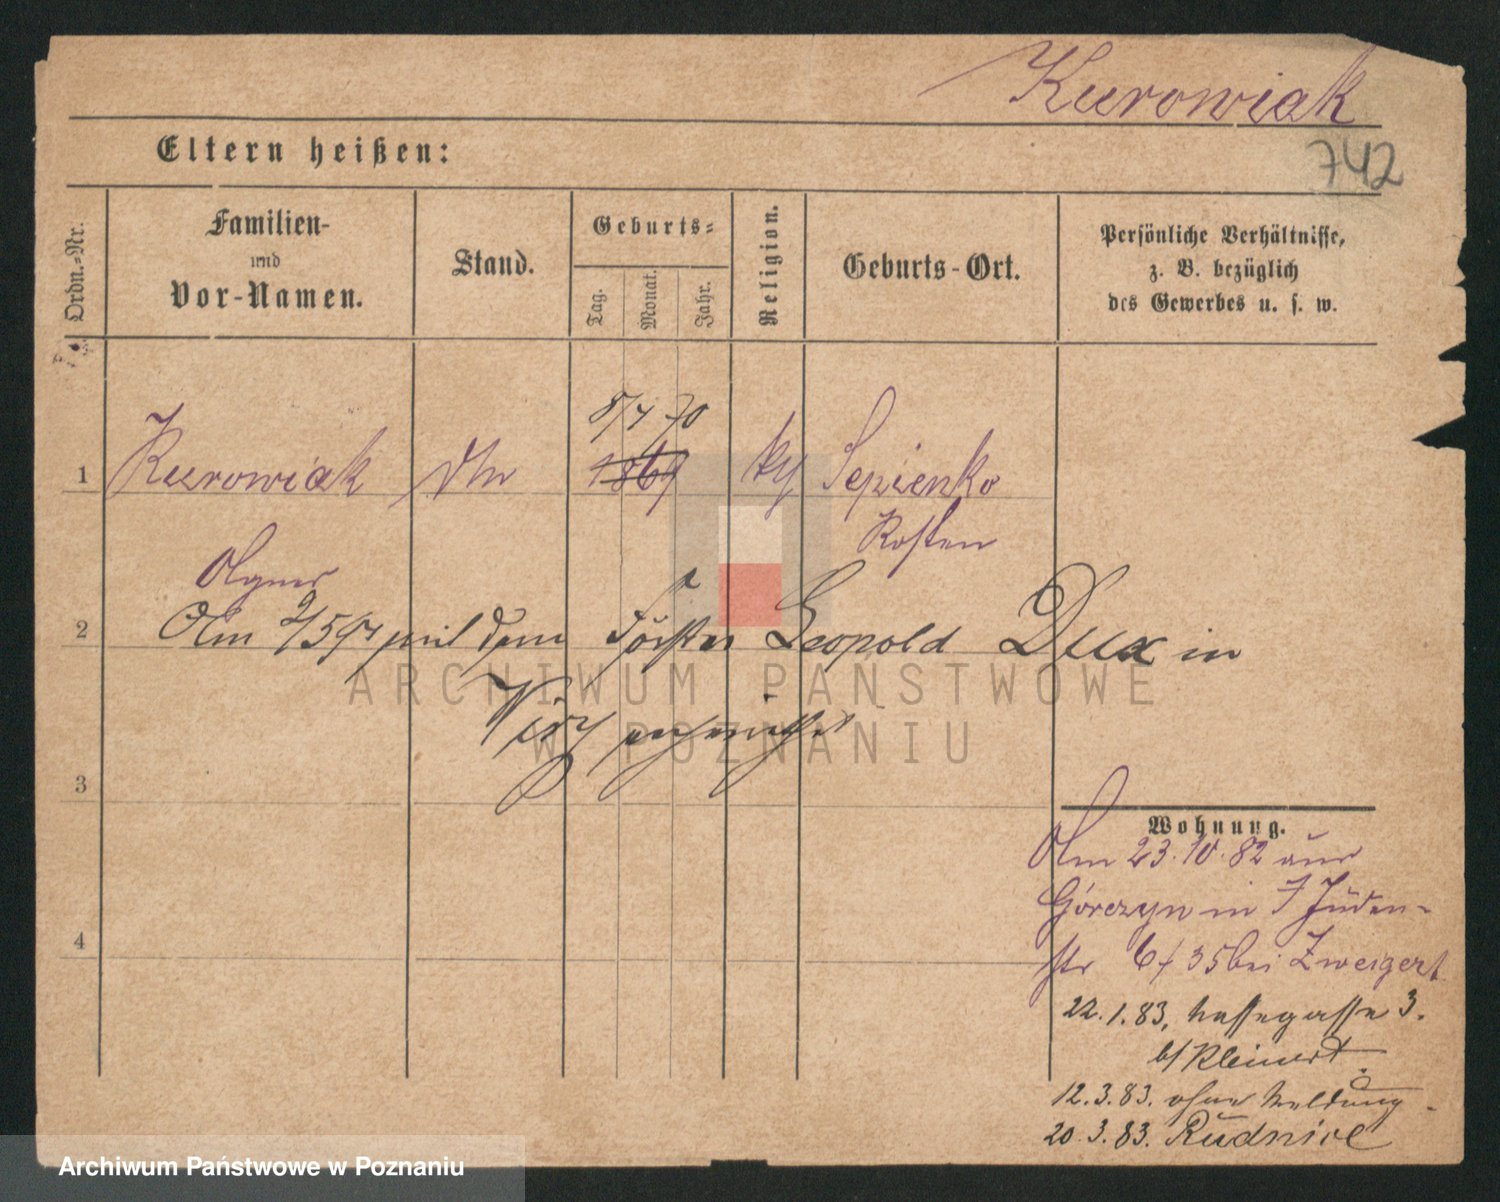 Kurowiak
742
Eltern heißen:
Ordn.-Nr.
Familien-
und
Vor-Namen.
Stand.
Geburts-
Tag.
Monat.
Jahr.
Religion.
Geburts-Ort.
Persönliche Verhältnisse,
z. B. bezüglich
des Gewerbes u. s. w.
8/4 70
1 Kurowiak 1869 Sepienko
Kosten
Agnes
2 Am mit dem Förster Leopold Dux in
3
Wohnung.
Am 23.10.82 aus
Górczyn in Juden-
4
str 6/ 35 bei Zweigert
22.1.83, Nassegasse 3.
b/ Kleinert.
12.3.83. ohne Meldung.
20.3.83. Rudnice
ARCHIWUM PAŃSTWOWE
W POZNANIU
Archiwum Państwowe w Poznaniu